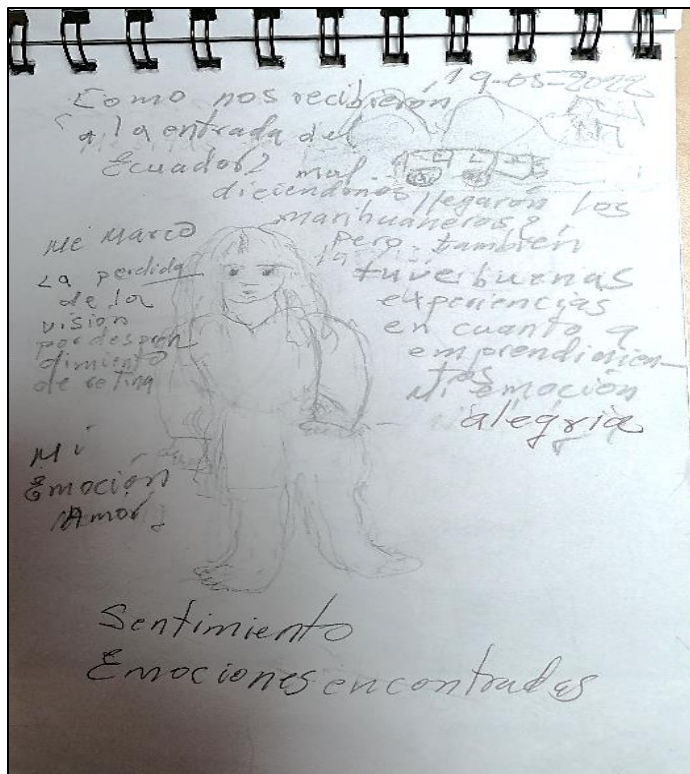 19-05-2022
Como nos recibierón
a la entrada del
Ecuador? mal
diciendonos llegarón los
marihuaneros?,
pero también
tuve buenas
experiencias
en cuanto a
emprendimien-
tos
Mi emoción
alegria
Me Marco
La perdida
de la
visión
por despren
dimiento
de retina
Mi
Emoción
Amor
Sentimiento
Emociones encontradas